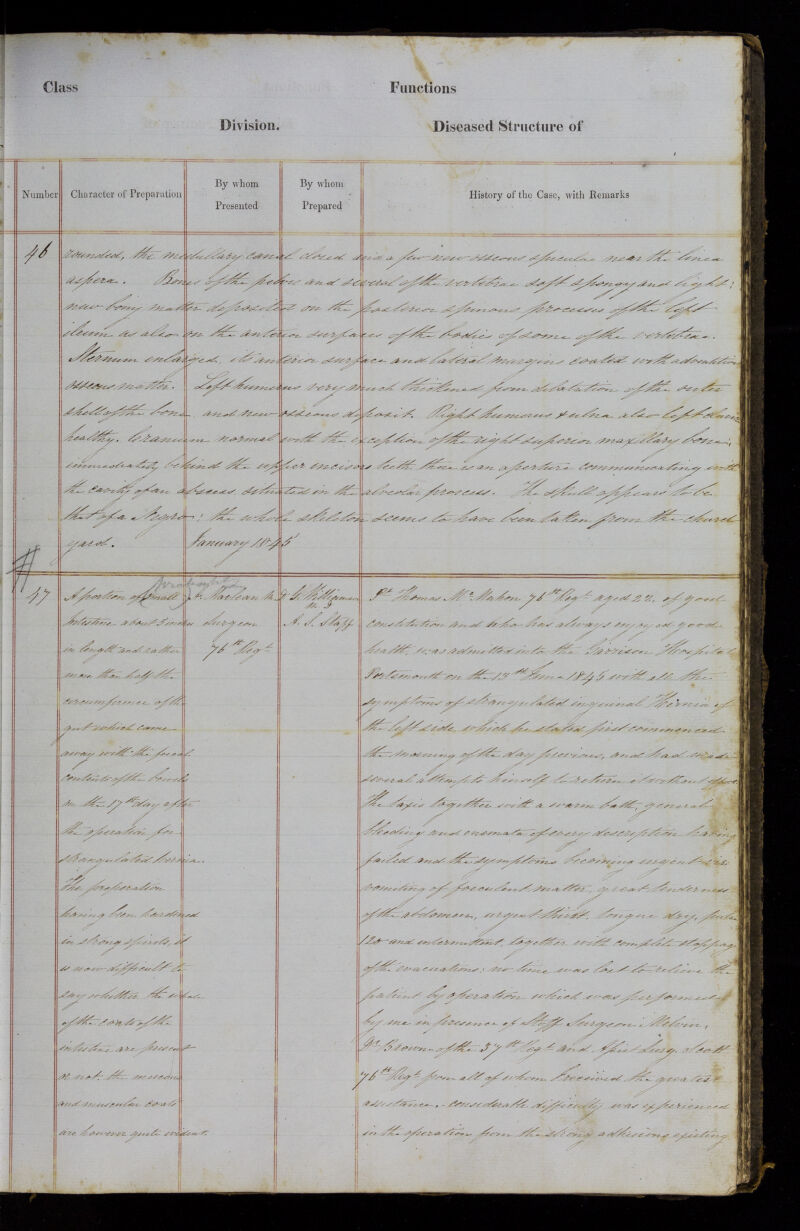 Class Functions
Division. Diseased Structure of
Number Character of Preparation By whom Presented By whom Prepared History of the Case, with Remarks
46 rounded, the medullary canal closed and a few new osseous spiculae near the linea
aspera. Bones of the pelvis and several of the vertebrae soft spongy and light;
new bony matter deposited on the posterior spinous processes of the left
ileum as also on the anterior surfaces of the bodies of some of the vertebrae.
Sternum enlarged, its anterior surface and lateral margins coated with
osseous matter. Left humerus very much thickened from dilatation of the outer
shell of the bone and new osseous deposit. Right humerus & ulna also left
healthy. Cranium normal with the exception of the right superior maxillary bone;
immediately behind the upper incisors teeth there is an aperture communicating with
the cavity of an abscess situated in the alveolar process. The skull appears to be
that of a Negro: the whole skeleton seems to have been taken from the church
yard. January 1845
47
A portion of small
intestine about 3 inches
in length and rather
more than half the
circumference of the
gut which came
away with the foecal
contents of the bowels
on the 17th day after
the operation for
strangulated hernia.
The preparation
having been hardened
in strong spirits, it
is now difficult to
say whether the whole
of the coats of the
intestine are present
or not. the mucous
and muscular coats
are however quite evident.
Maclean M.D
Surgeon
76th Regt
G. Williamson
M.D
A. S. Staff
Pt Thomas McMahon 76th Regt aged 22. of good
constitution and who has always enjoyed good
health was admitted into the Garrison Hospital
Portsmouth on the 13th June 1845 with all the
symptoms of strangulated inguinal Hernia of
the left side which he stated first commenced
the morning of the day previous, and had made
several attempts himself to return it without
The taxis together with a warm bath, general
bleeding and enemata of every description having
failed and the symptoms becoming urgent viz
vomiting of foeculent matter, great tenderness
of the abdomen, urgent thirst. tongue dry, pulse
120 and intermittent, together with complete stoppage
of the evacuations: no time was lost to relieve the
patient by operation which was performed
by me in presence of Staff Surgeon Melvin,
Dr Brown of the 37th Regt and Asst Surg Scott
76th Regt from all of whom I received the greatest
assistance. considerable difficulty was experienced
in the operation from the strong adhesions existing